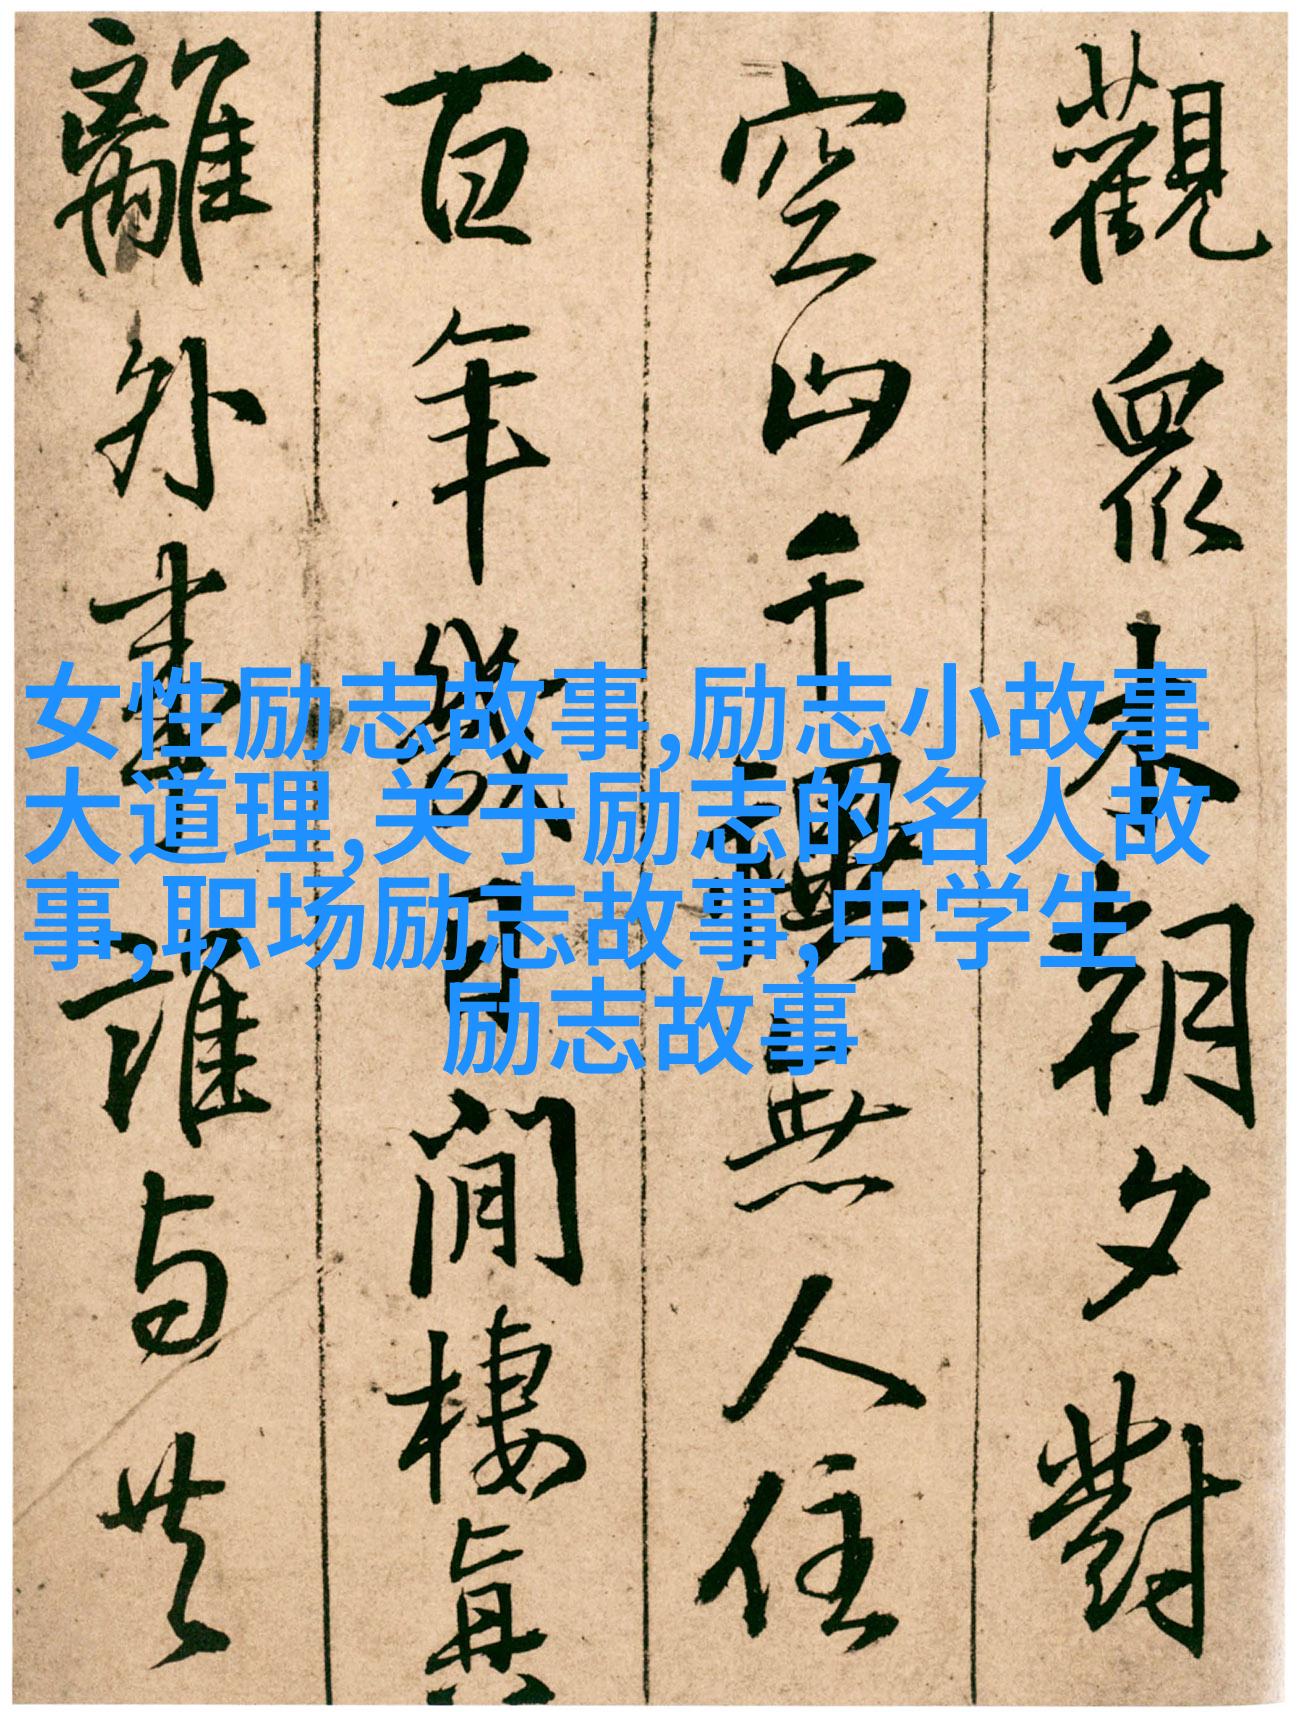 觀衆木朝夕對
空山千禩無人住
百年幾閒棲真
離外誰与共
女性励志故事,励志小故事
大道理,关于励志的名人故
事,职场励志故事,中学生
励志故事